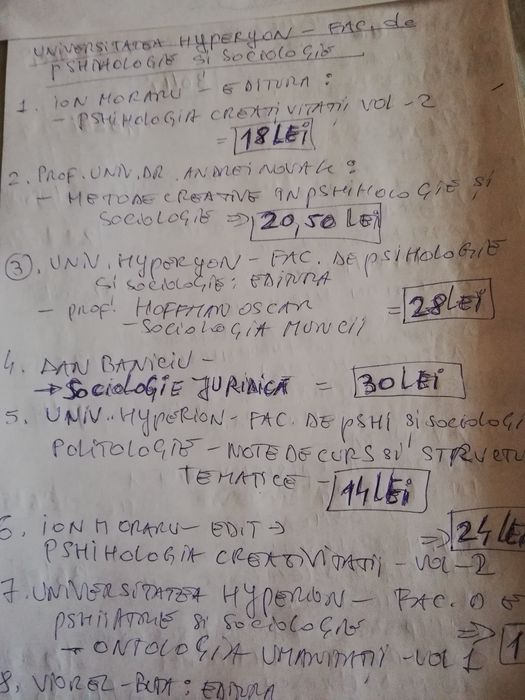 UNIVERSITATEA HYPERYON - FAC. de
PSHIHOLOGIE SI SOCIOLOGIE
1. ION MORARU - EDITURA:
- PSHIHOLOGIA CREATIVITATII VOL - 2
= 18 LEI
2. PROF. UNIV. DR. ANDREI NOVAK:
- METODE CREATIVE IN PSHIHOLOGIE SI
SOCIOLOGIE => 20,50 LEI
3. UNIV. HYPERYON - FAC. DE PSIHOLOGIE
SI SOCIOLOGIE: EDITURA
- PROF. HOFFMAN OSCAR = 28 LEI
- SOCIOLOGIA MUNCII
4. DAN BANICIU -
→ SOCIOLOGIE JURIDICA = 30 LEI
5. UNIV. HYPERION - FAC. DE PSHI SI SOCIOLOGI
POLITOLOGIE - NOTE DE CURS SI STRUCTU
TEMATICE - 14 LEI
6. ION MORARU - EDIT → => 24 LEI
PSHIHOLOGIA CREATIVITATII - VOL - 2
7. UNIVERSITATEA HYPERION - FAC. DE
PSHIIATRIE SI SOCIOLOGIE => 1
- ONTOLOGIA UMANITATII - VOL 1
8. VIOREL - : EDITURA